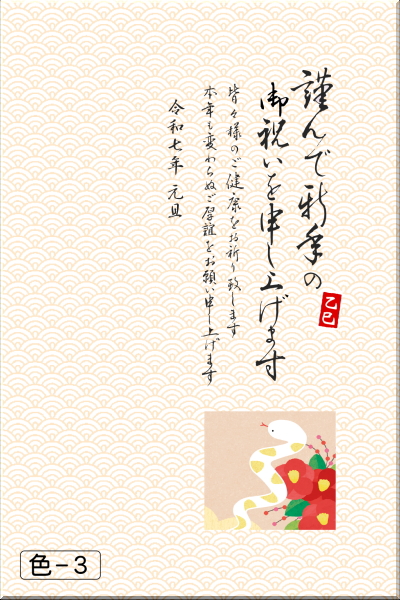 謹んで新年の
御祝いを申し上げます
皆々様のご健康をお祈り致します
本年も変わらぬご厚誼をお願い申し上げます
令和七年 元旦
乙巳
色-3